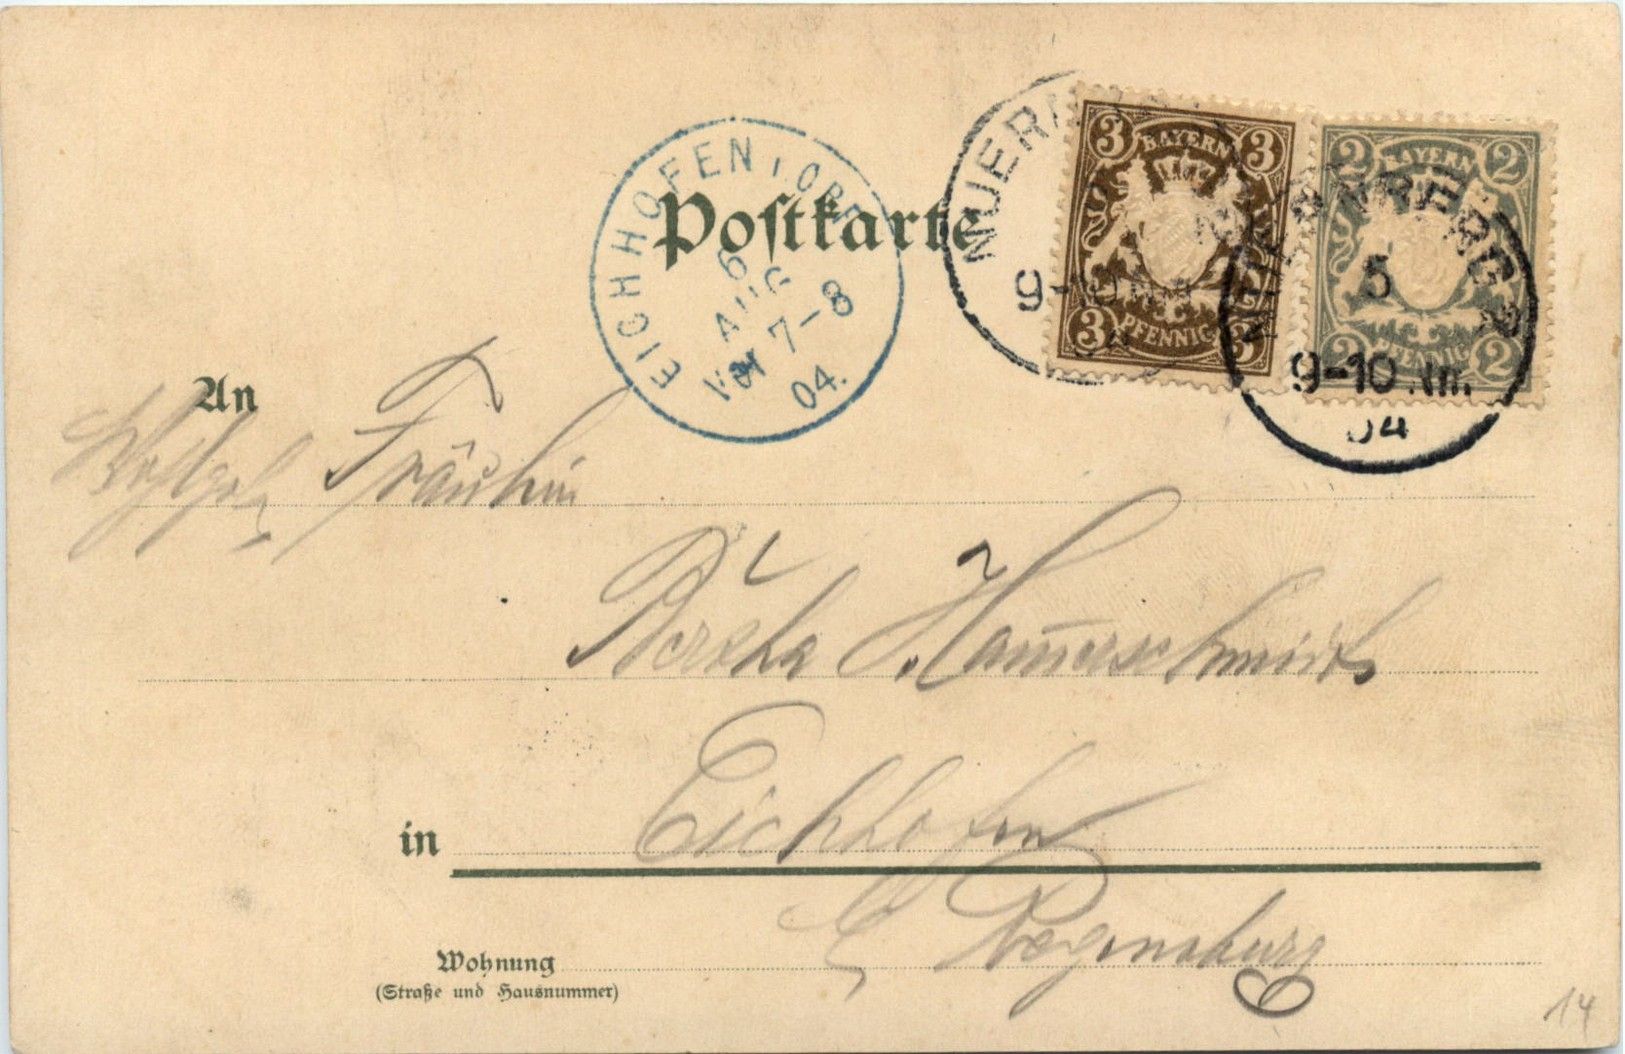 Postkarte
EICHHOFEN i. OBPF.
6
AUG
VM 7-8
04.
NUERNBERG
9-10 NM.
04
3 BAYERN 3
3 PFENNIG 3
2 BAYERN 2
PFENNIG 2
NUERNBERG 2
5
9-10 NM.
04
An
Wohlgeb. Fräulein
Bertha Hammerschmidt
in Eichhofen
b/ Regensburg
Wohnung
(Straße und Hausnummer)
14